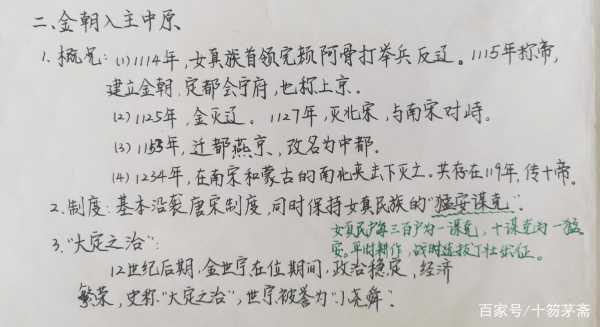 二、金朝入主中原
1. 概况：(1) 1114年，女真族首领完颜阿骨打举兵反辽。1115年称帝，
建立金朝，定都会宁府，也称上京。
(2) 1125年，金灭辽。1127年，灭北宋，与南宋对峙。
(3) 1153年，迁都燕京，改名为中都。
(4) 1234年，在南宋和蒙古的南北夹击下灭亡。共存在119年，传十帝。
2. 制度：基本沿袭唐宋制度，同时保持女真民族的“猛安谋克”。
女真民户每三百户为一谋克，十谋克为一猛
安。平时耕作，战时选拔丁壮出征。
3. “大定之治”：
12世纪后期，金世宗在位期间，政治稳定，经济
繁荣，史称“大定之治”，世宗被誉为“小尧舜”。
百家号/十笏茅斋